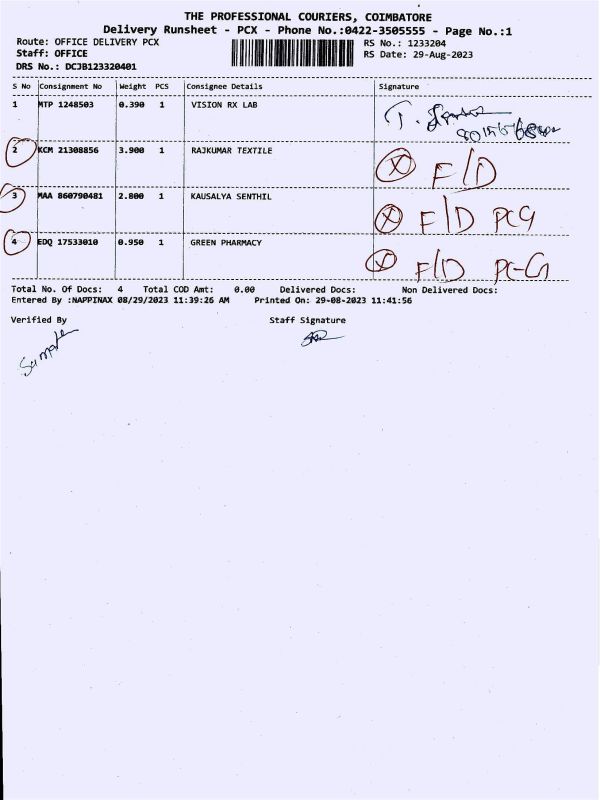 THE PROFESSIONAL COURIERS, COIMBATORE
Delivery Runsheet - PCX - Phone No.:0422-3505555 - Page No.:1
Route: OFFICE DELIVERY PCX RS No.: 1233204
Staff: OFFICE RS Date: 29-Aug-2023
DRS No.: DCJB123320401
S No Consignment No Weight PCS Consignee Details Signature
1 MTP 1248503 0.390 1 VISION RX LAB
2 KCM 21308856 3.900 1 RAJKUMAR TEXTILE F/D
3 MAA 860790481 2.800 1 KAUSALYA SENTHIL F/D PCG
4 EDQ 17533010 0.950 1 GREEN PHARMACY F/D PC-G
Total No. Of Docs: 4 Total COD Amt: 0.00 Delivered Docs: Non Delivered Docs:
Entered By :NAPPINAX 08/29/2023 11:39:26 AM Printed On: 29-08-2023 11:41:56
Verified By Staff Signature